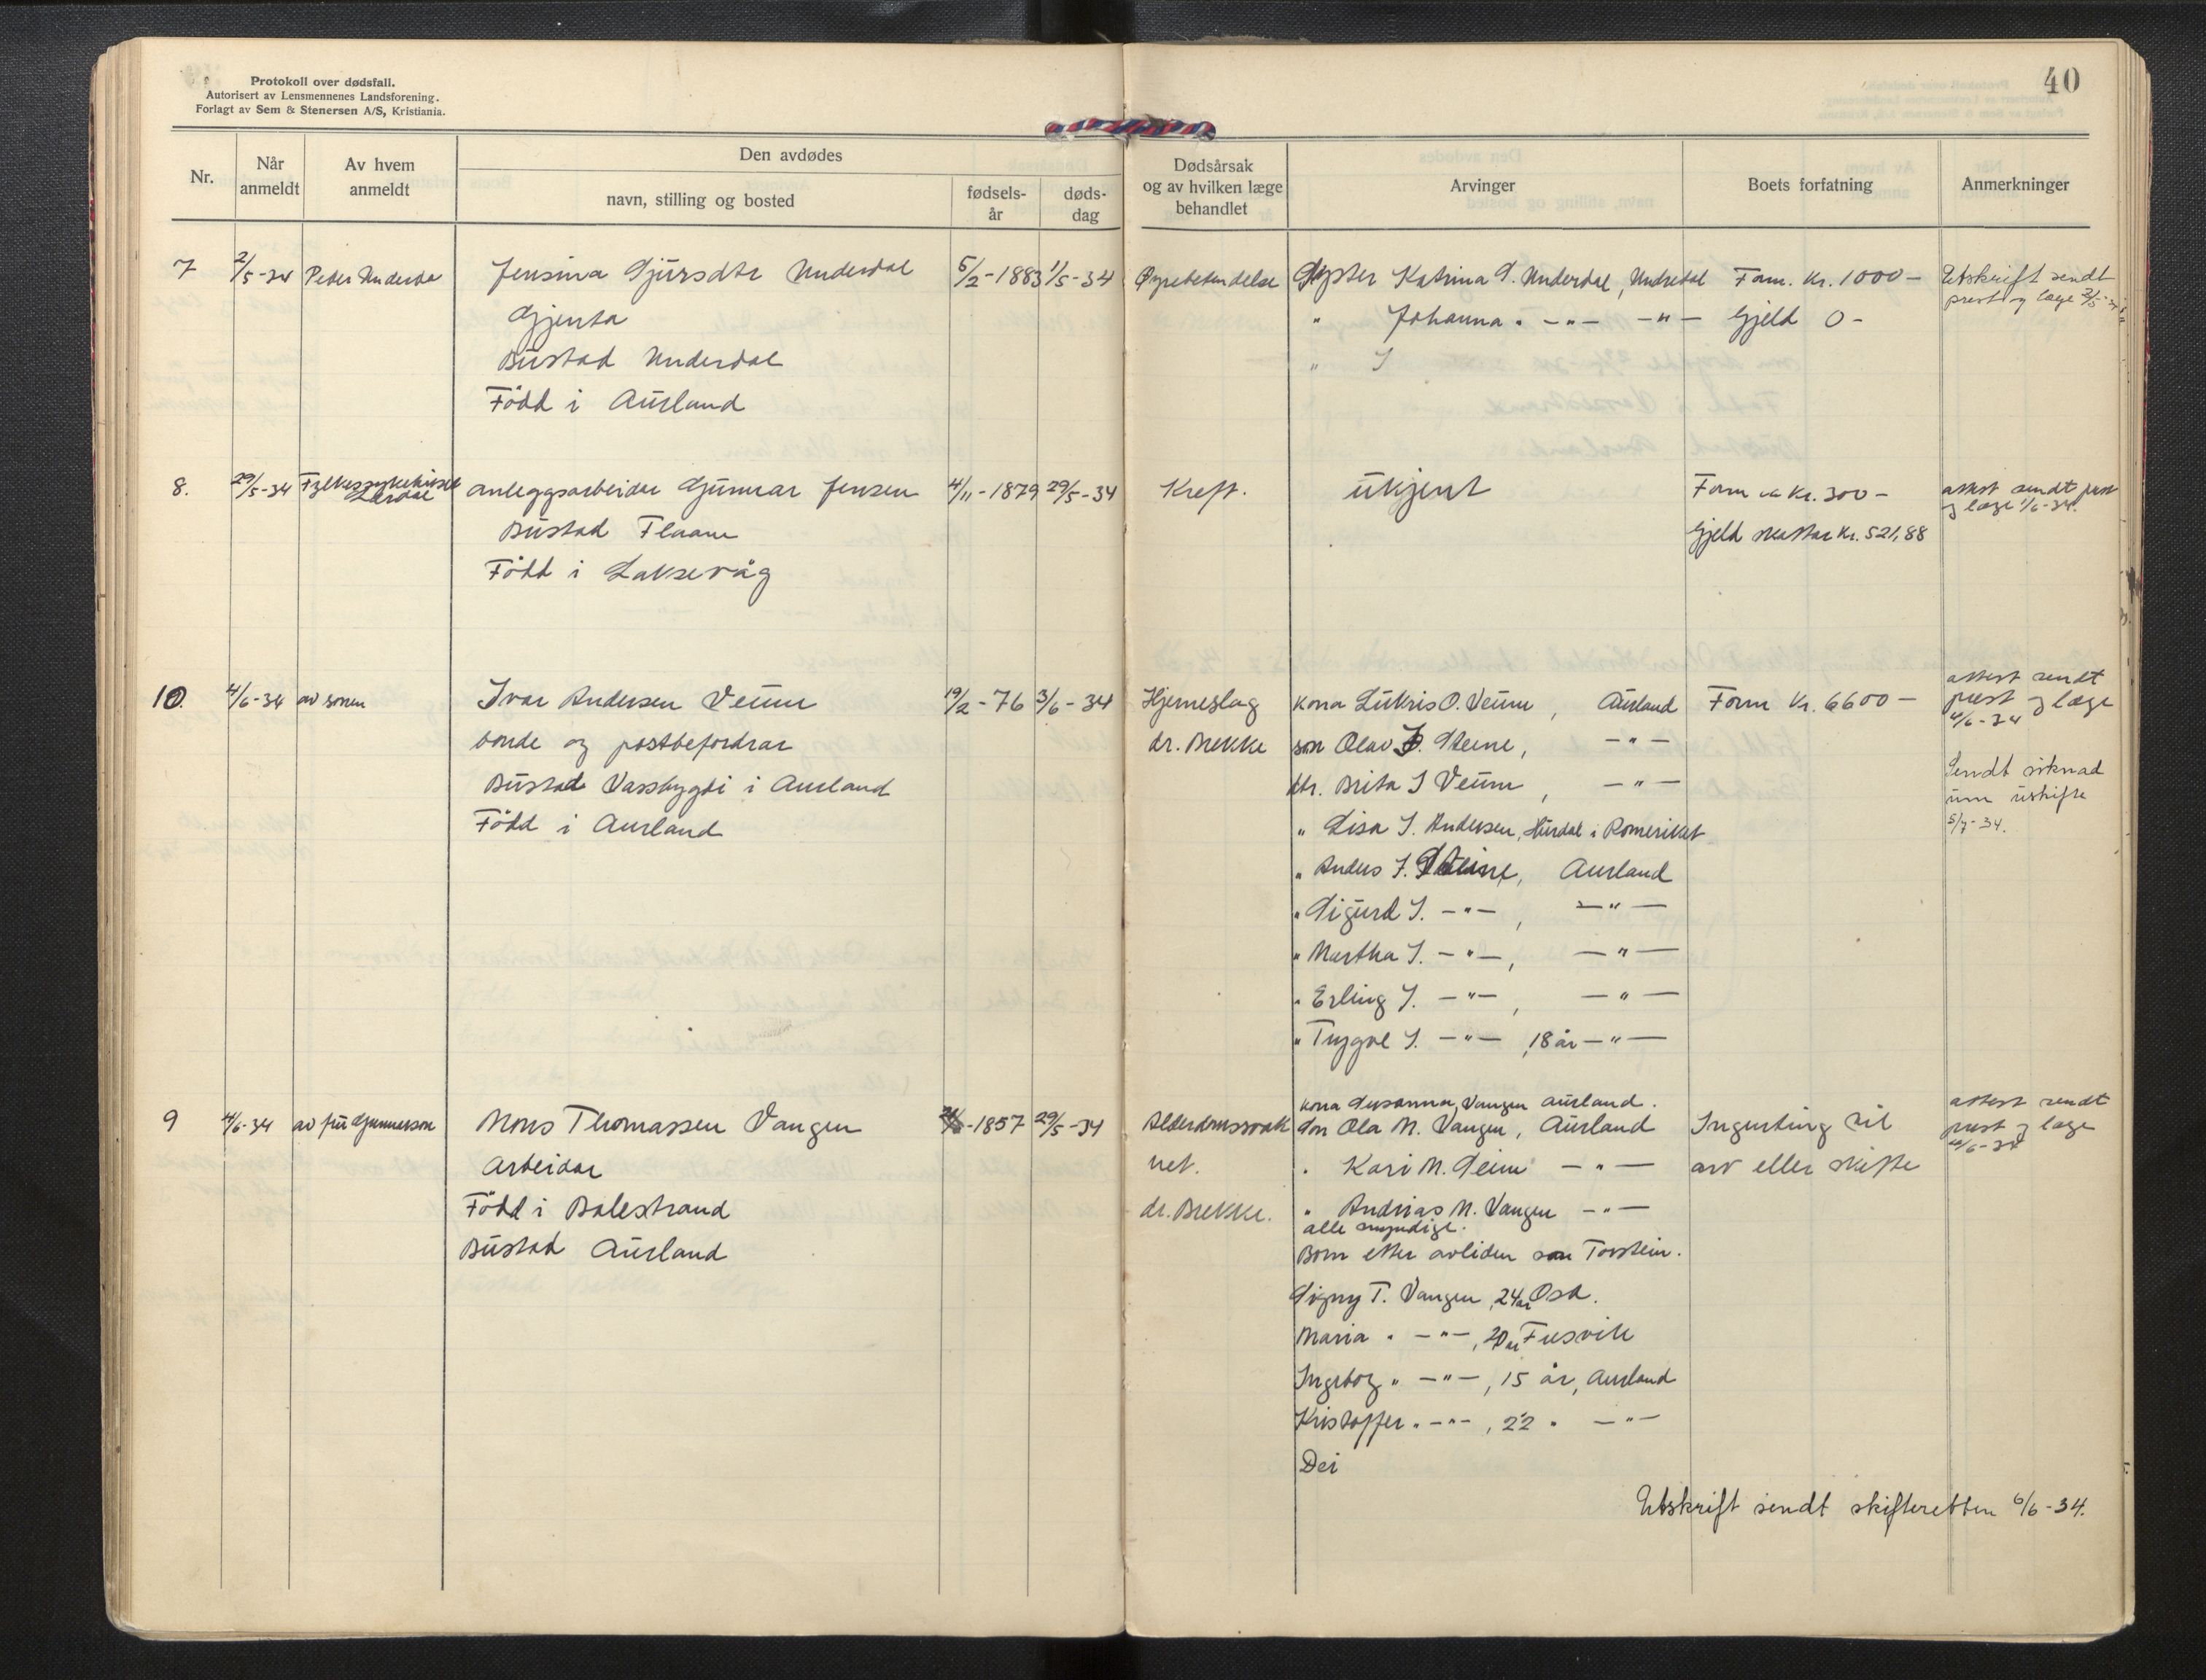 Protokoll over dødsfall.
Autorisert av Lensmennenes Landsforening.
Forlagt av Sem & Stenersen A/S, Kristiania.
40
Nr.
Når anmeldt
Av hvem anmeldt
Den avdødes
navn, stilling og bosted
fødsels-år
døds-dag
Dødsårsak og av hvilken læge behandlet
Arvinger
Boets forfatning
Anmerkninger
7 2/5-34 Peder Underdal Jensina Sjursdtr Underdal 5/2-1883 1/5-34 Øyrebetendelse Syster Katrina S. Underdal, Undredal Form. Kr. 1000- Utskrift sendt
Gjenta " Johanna " -"- -"- Gjeld 0- prest og læge 2/5-34
Bustad Underdal "
Född i Aurland
8. 29/5-34 Fylkessykehuset Lærdal anleggsarbeidar Gunnar Jensen 4/11-1879 29/5-34 Kreft. ukjent Form ca Kr. 300- attest sendt prest
Bustad Flaam og læge 1/6-34.
Gjeld skattar Kr. 521,88
Född i Laksevåg
10. 4/6-34 av sonen Ivar Andersen Veum 19/2-76 3/6-34 Hjerneslag kona Lukris O. Veum, Aurland Form Kr. 6600- attest sendt
prest og læge
4/6-34
bonde og postbefordrar dr. Brekke son Olav I. Steine, -"-
Bustad Vassbygdi i Aurland dtr. Brita I Veum, -"- Sendt söknad
um uskifte
5/7-34.
Född i Aurland " Lisa I. Andersen, Hurdal i Romeriket
" Anders I. Steine, Aurland
" Sigurd I. -"-, -"-
" Martha I. -"-, -"-
" Erling I. -"-, -"-
" Trygve I. -"-, 18 år -"-
9 4/6-34 av fru Gunnerson Mons Thomassen Vangen -1857 29/5-34 Alderdomssvak kona Susanna Vangen Aurland.
son Ola M. Vangen, Aurland Ingenting til attest sendt
prest og læge
4/6-34
Arbeidar het. " Kari M. Steine -"- arv eller skifte
Född i Balestrand dr. Brekke. " Andrias M. Vangen -"-
alle myndige.
Bustad Aurland Born etter avliden son Torstein.
Signy T. Vangen, 24 år
Maria " -"-, 20 år
Ingeborg " -"-, 15 år, Aurland
Kristoffer " -"-, 22 " -"-
Dei
Utskrift sendt skifteretten 6/6-34.